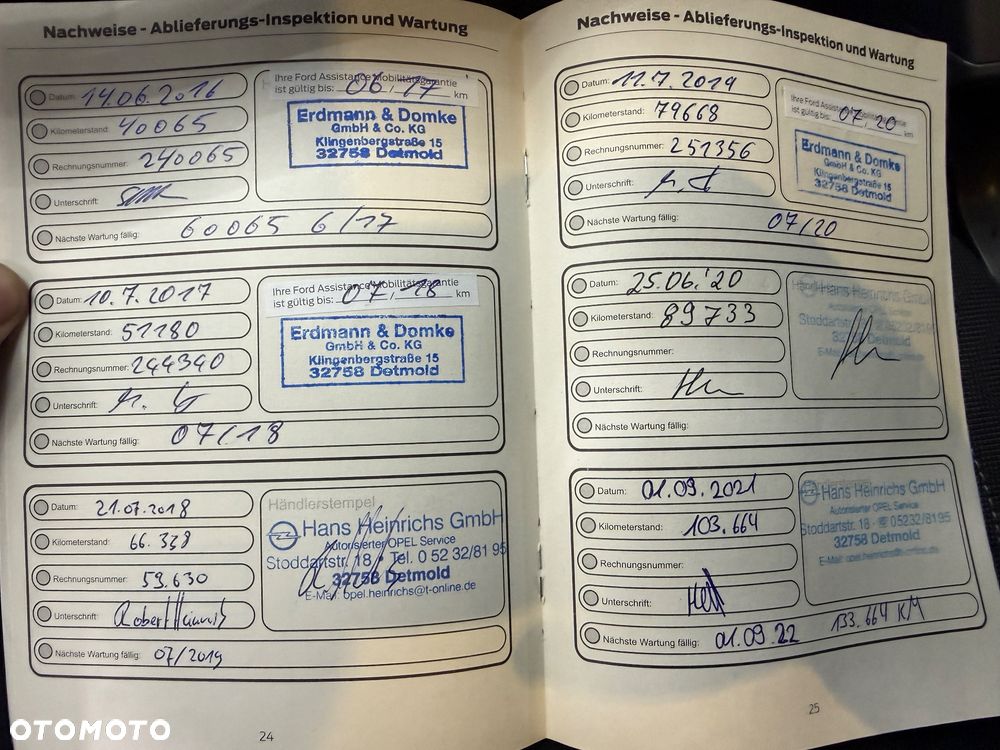 Nachweise - Ablieferungs-Inspektion und Wartung
Datum: 14.06.2016
Kilometerstand: 40065
Rechnungsnummer: 240065
Unterschrift:
Nächste Wartung fällig: 60065 6/17
Ihre Ford Assistance Mobilitätsgarantie
ist gültig bis: 06/17 km
Erdmann & Domke
GmbH & Co. KG
Klingenbergstraße 15
32758 Detmold
Datum: 10.7.2017
Kilometerstand: 51180
Rechnungsnummer: 244340
Unterschrift:
Nächste Wartung fällig: 07/18
Ihre Ford Assistance Mobilitätsgarantie
ist gültig bis: 07/18 km
Erdmann & Domke
GmbH & Co. KG
Klingenbergstraße 15
32758 Detmold
Datum: 21.07.2018
Kilometerstand: 66.338
Rechnungsnummer: 53.630
Unterschrift: Robert Heinrichs
Nächste Wartung fällig: 07/2019
Händlerstempel
Hans Heinrichs GmbH
Autorisierter OPEL Service
Stoddartstr. 18 • Tel. 0 52 32/81 95
32758 Detmold
E-Mail: opel.heinrichs@t-online.de
24
Nachweise - Ablieferungs-Inspektion und Wartung
Datum: 11.7.2019
Kilometerstand: 79668
Rechnungsnummer: 251356
Unterschrift:
Nächste Wartung fällig: 07/20
Ihre Ford Assistance Mobilitätsgarantie
ist gültig bis: 07/20 km
Erdmann & Domke
GmbH & Co. KG
Klingenbergstraße 15
32758 Detmold
Datum: 25.06.'20
Kilometerstand: 89733
Rechnungsnummer:
Unterschrift:
Nächste Wartung fällig:
Hans Heinrichs GmbH
Stoddartstr. 18 05232/81
Datum: 01.09.2021
Kilometerstand: 103.664
Rechnungsnummer:
Unterschrift:
Nächste Wartung fällig: 01.09.22 133.664 KM
Hans Heinrichs GmbH
Autorisierter OPEL Service
Stoddartstr. 18 - ✆ 05232/81 95
32758 Detmold
E-Mail: opel.heinrichs@t-online.de
25
OTOMOTO